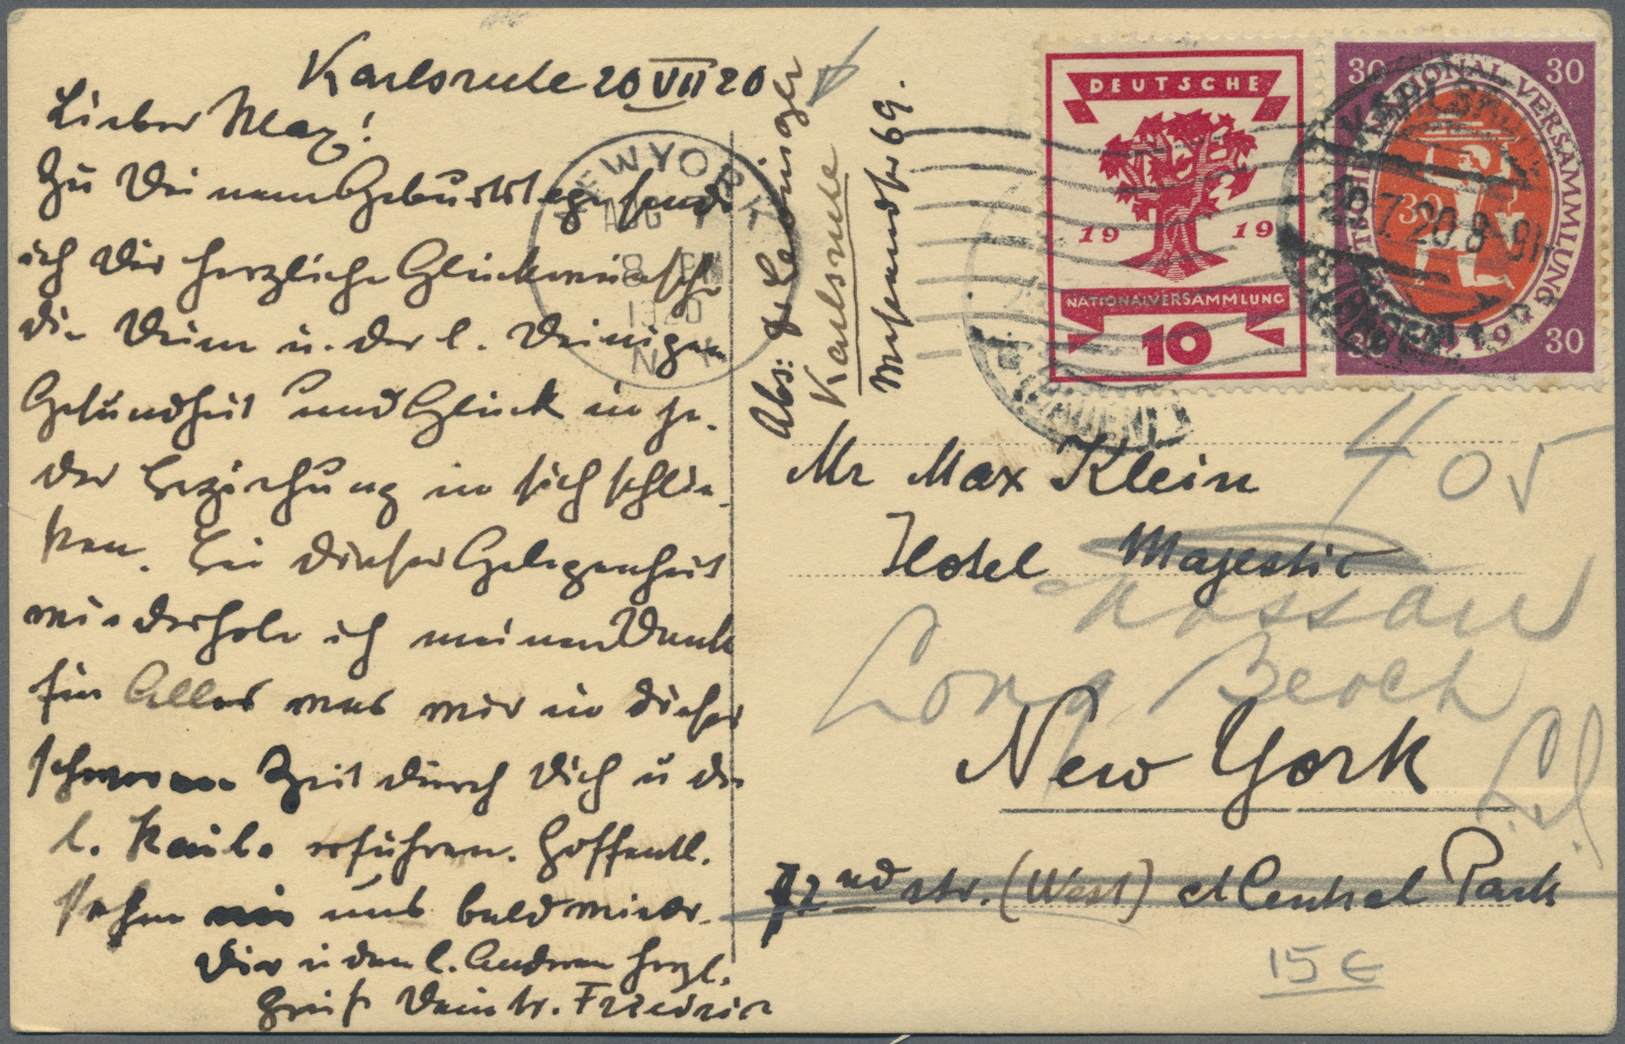 Karlsruhe 20 VII 20
Lieber Max!
Zu Deinem Geburtstage sende
ich Dir herzliche Glückwünsche
die Deine u. der l. Deinigen
Gesundheit und Glück in je-
der Beziehung in sich schlie-
ßen. Bei dieser Gelegenheit
wiederhole ich meinen Dank
für Alles was mir in dieser
schweren Zeit durch Dich u die
l. erfuhren. Hoffentl.
sehen wir uns bald wieder.
Dir u den l. Anderen herzl.
Gruß Dein tr.
Abs:
Karlsruhe
69.
NEW YORK
AUG
8 PM
1920
N.Y.
DEUTSCHE
19 19
NATIONALVERSAMMLUNG
10
30 30
NATIONALVERSAMMLUNG
30
30 30
20.7.20.8-9V
(BADEN)
Mr Max Klein
405
Hotel Majestic
Nassau
Long Beach
New York
L.I.
72nd str. (West) at Central Park
15 €